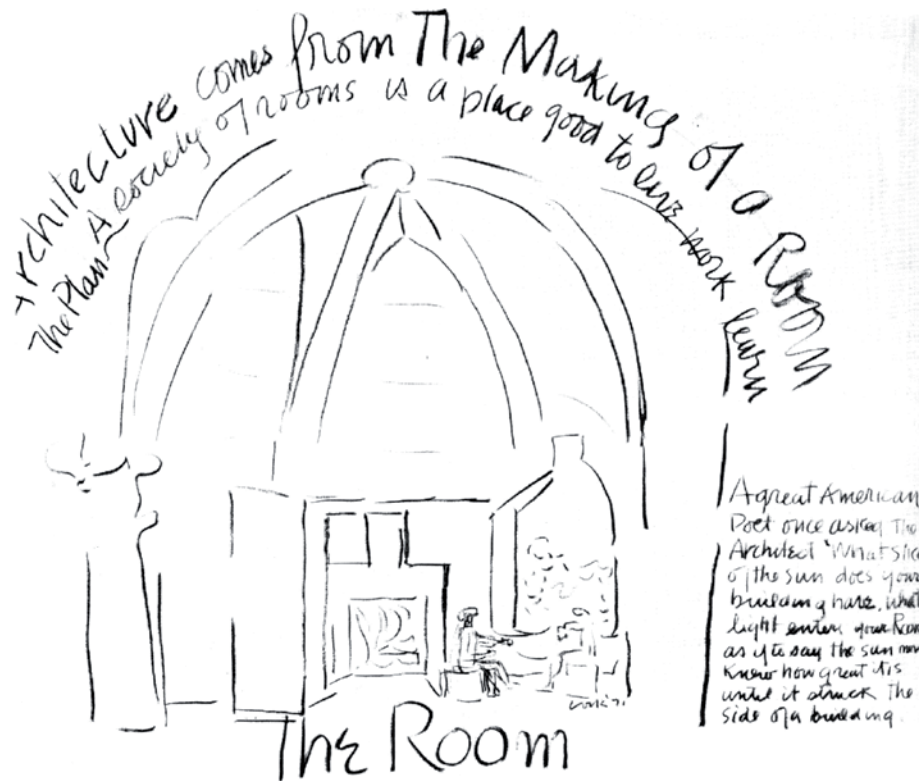 Architecture comes from The Making of a Room
The Plan A society of rooms is a place good to live work learn
A great American
Poet once asked The
Architect 'What slice
of the sun does your
building have. what
light enters your Room
as if to say the sun never
knew how great it is
until it struck the
side of a building.
The Room